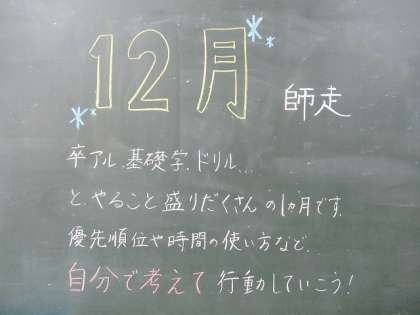 12月 師走
卒アル、基礎学、ドリル…
と、やること盛りだくさんの1ヵ月です。
優先順位や時間の使い方など、
自分で考えて行動していこう!